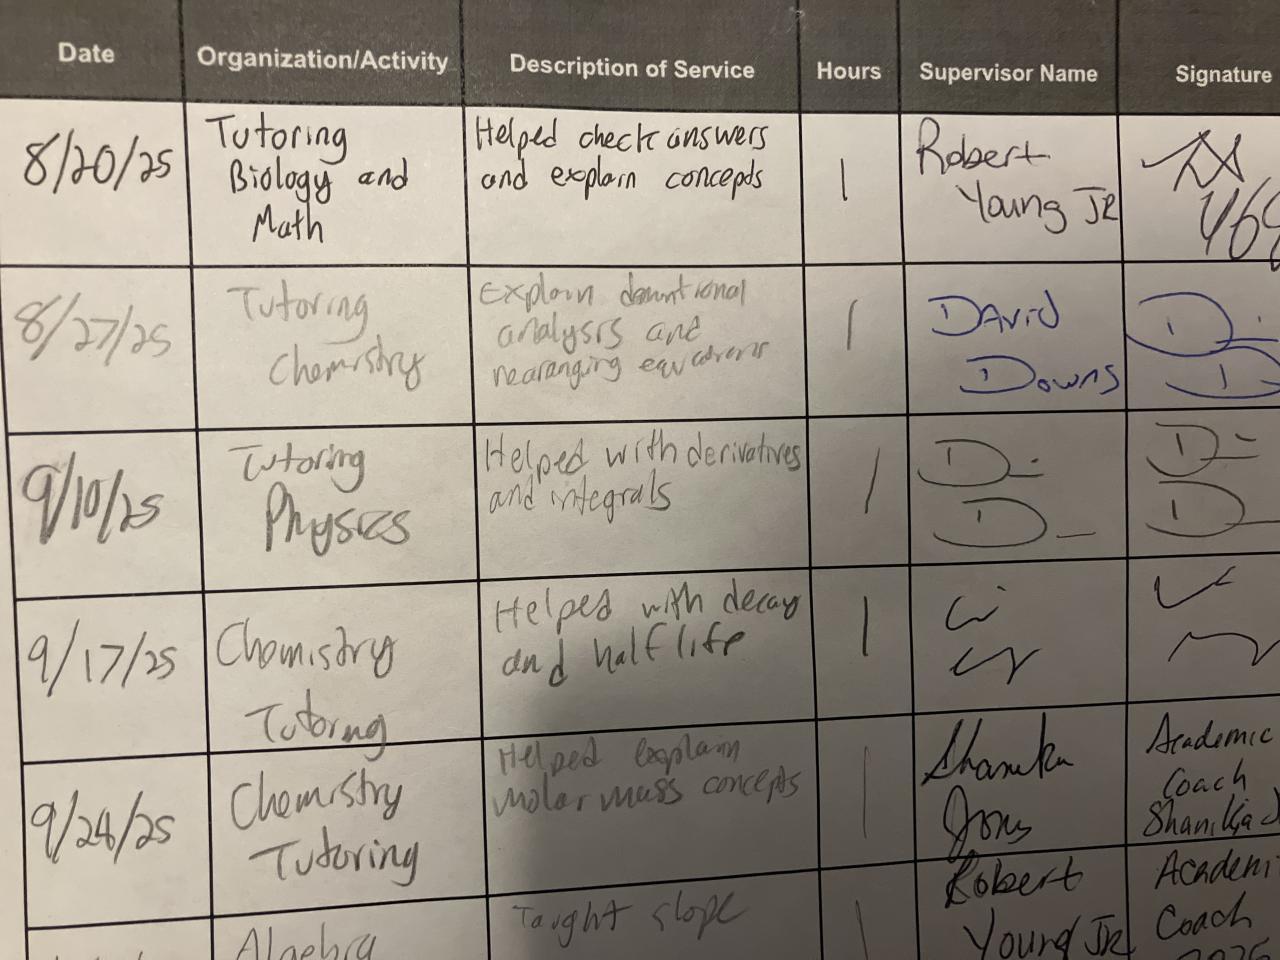 Date
Organization/Activity
Description of Service
Hours
Supervisor Name
Signature
8/20/25
Tutoring
Biology and
Math
Helped check answers
and explain concepts
1
Robert
Young JR
8/27/25
Tutoring
Chemistry
Explain
analysis and
rearanging
1
David
Downs
9/10/25
Tutoring
Physics
Helped with derivatives
and integrals
1
D
D
D
D
9/17/25
Chemistry
Tutoring
Helped with decay
and half life
1
9/24/25
Chemistry
Tutoring
Helped explain
molar mass concepts
1
Jones
Academic
Coach
Shanika J
Algebra
Taught slope
1
Robert
Young JR
Academi
Coach